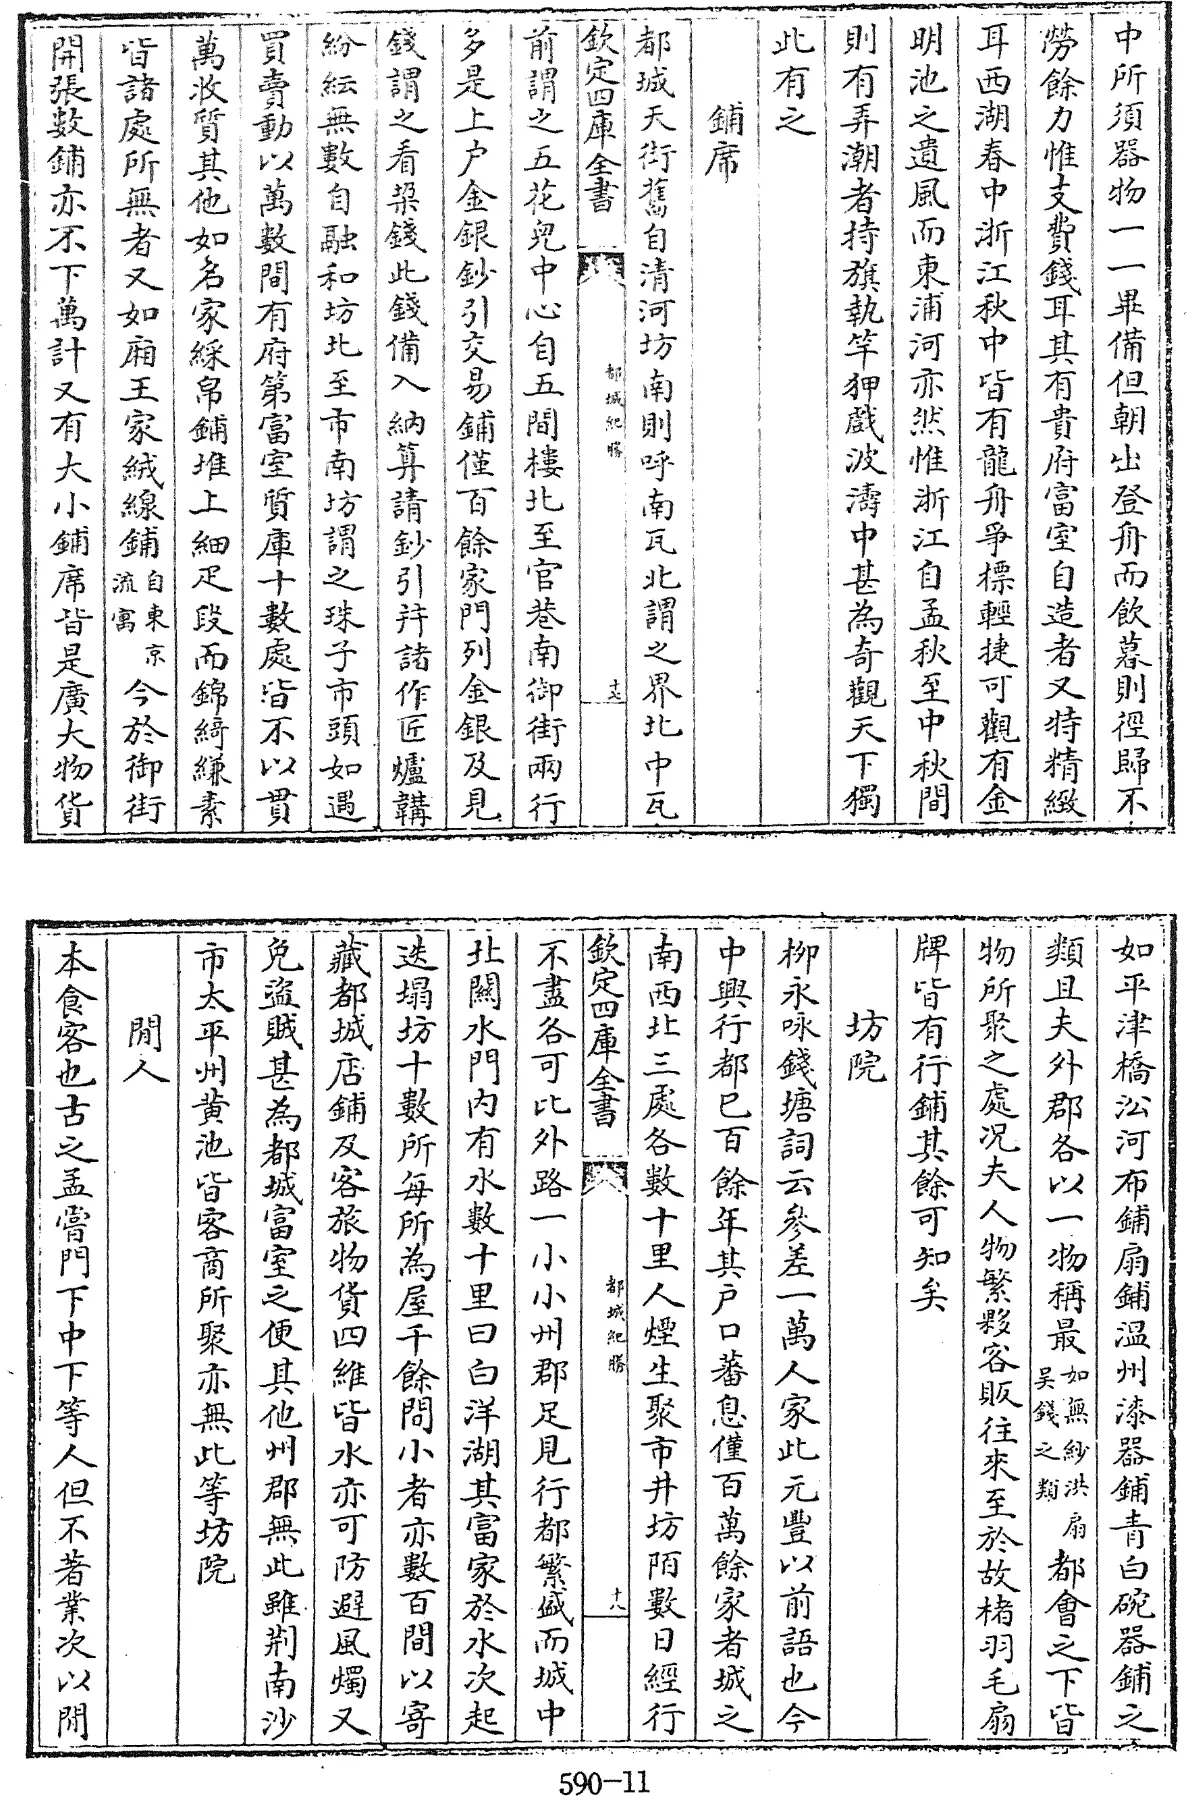 中所須器物一一畢備但朝出登舟而飲暮則徑歸不
勞餘力惟支費錢耳其有貴府富室自造者又特精緻
耳西湖春中浙江秋中皆有龍舟爭標輕捷可觀有金
明池之遺風而東浦河亦然惟浙江自孟秋至中秋間
則有弄潮者持旗執竿狎戲波濤中甚為奇觀天下獨
此有之
鋪席
都城天街舊自清河坊南則呼南瓦北謂之界北中瓦
欽定四庫全書
都城紀勝
十七
前謂之五花兒中心自五間樓北至官巷南御街兩行
多是上户金銀鈔引交易鋪僅百餘家門列金銀及見
錢謂之看垜錢此錢備入納算請鈔引并諸作匠爐鞲
紛紜無數自融和坊北至市南坊謂之珠子市頭如遇
買賣動以萬數間有府第富室質庫十數處皆不以貫
萬收質其他如名家綵帛鋪堆上細疋段而錦綺縑素
皆諸處所無者又如廂王家絨線鋪自東京流寓今於御街
開張數鋪亦不下萬計又有大小鋪席皆是廣大物貨
如平津橋沿河布鋪扇鋪溫州漆器鋪青白碗器鋪之
類且夫外郡各以一物稱最如無紗洪扇吳錢之類都會之下皆
物所聚之處况夫人物繁夥客販往來至於故楮羽毛扇
牌皆有行鋪其餘可知矣
坊院
柳永咏錢塘詞云參差一萬人家此元豐以前語也今
中興行都已百餘年其户口蕃息僅百萬餘家者城之
南西北三處各數十里人煙生聚市井坊陌數日經行
欽定四庫全書
都城紀勝
十八
不盡各可比外路一小小州郡足見行都繁盛而城中
北關水門内有水數十里曰白洋湖其富家於水次起
迭塌坊十數所每所為屋千餘間小者亦數百間以寄
藏都城店鋪及客旅物貨四維皆水亦可防避風燭又
免盜賊甚為都城富室之便其他州郡無此雖荆南沙
市太平州黄池皆客商所聚亦無此等坊院
閒人
本食客也古之孟嘗門下中下等人但不著業次以閒
590-11